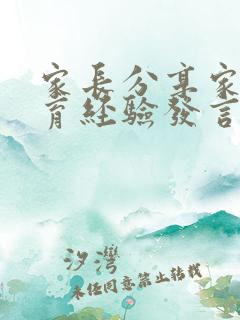 家長分享家
育經驗發言
汐灣
未经同意禁止转载